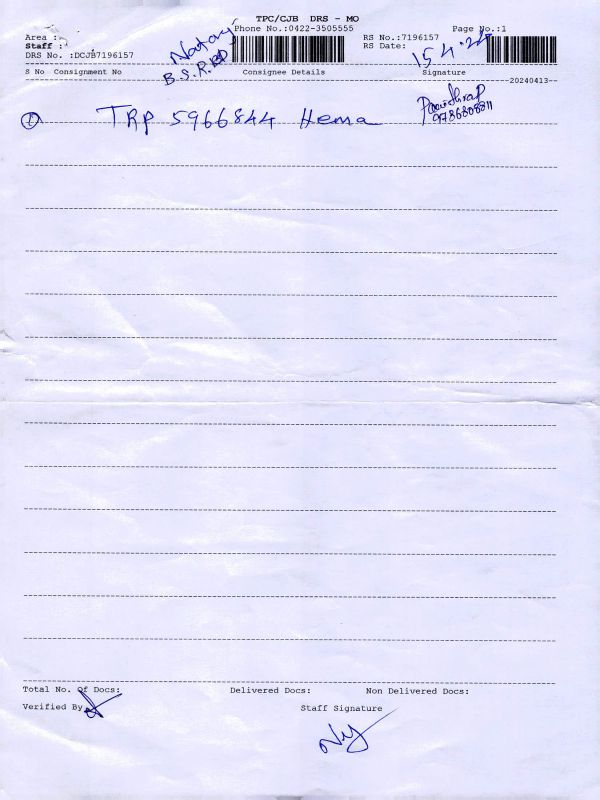 TPC/CJB DRS - MO
Phone No.:0422-3505555
Page No.:1
Area :
Staff :
DRS No. :DCJB7196157
Nataraj
B.S.R.
RS No.:7196157
RS Date:
15.4.24
S No Consignment No
Consignee Details
Signature
--20240413--
1 TRP 5966844 Hema
9786808811
Total No. Of Docs:
Delivered Docs:
Non Delivered Docs:
Verified By
Staff Signature